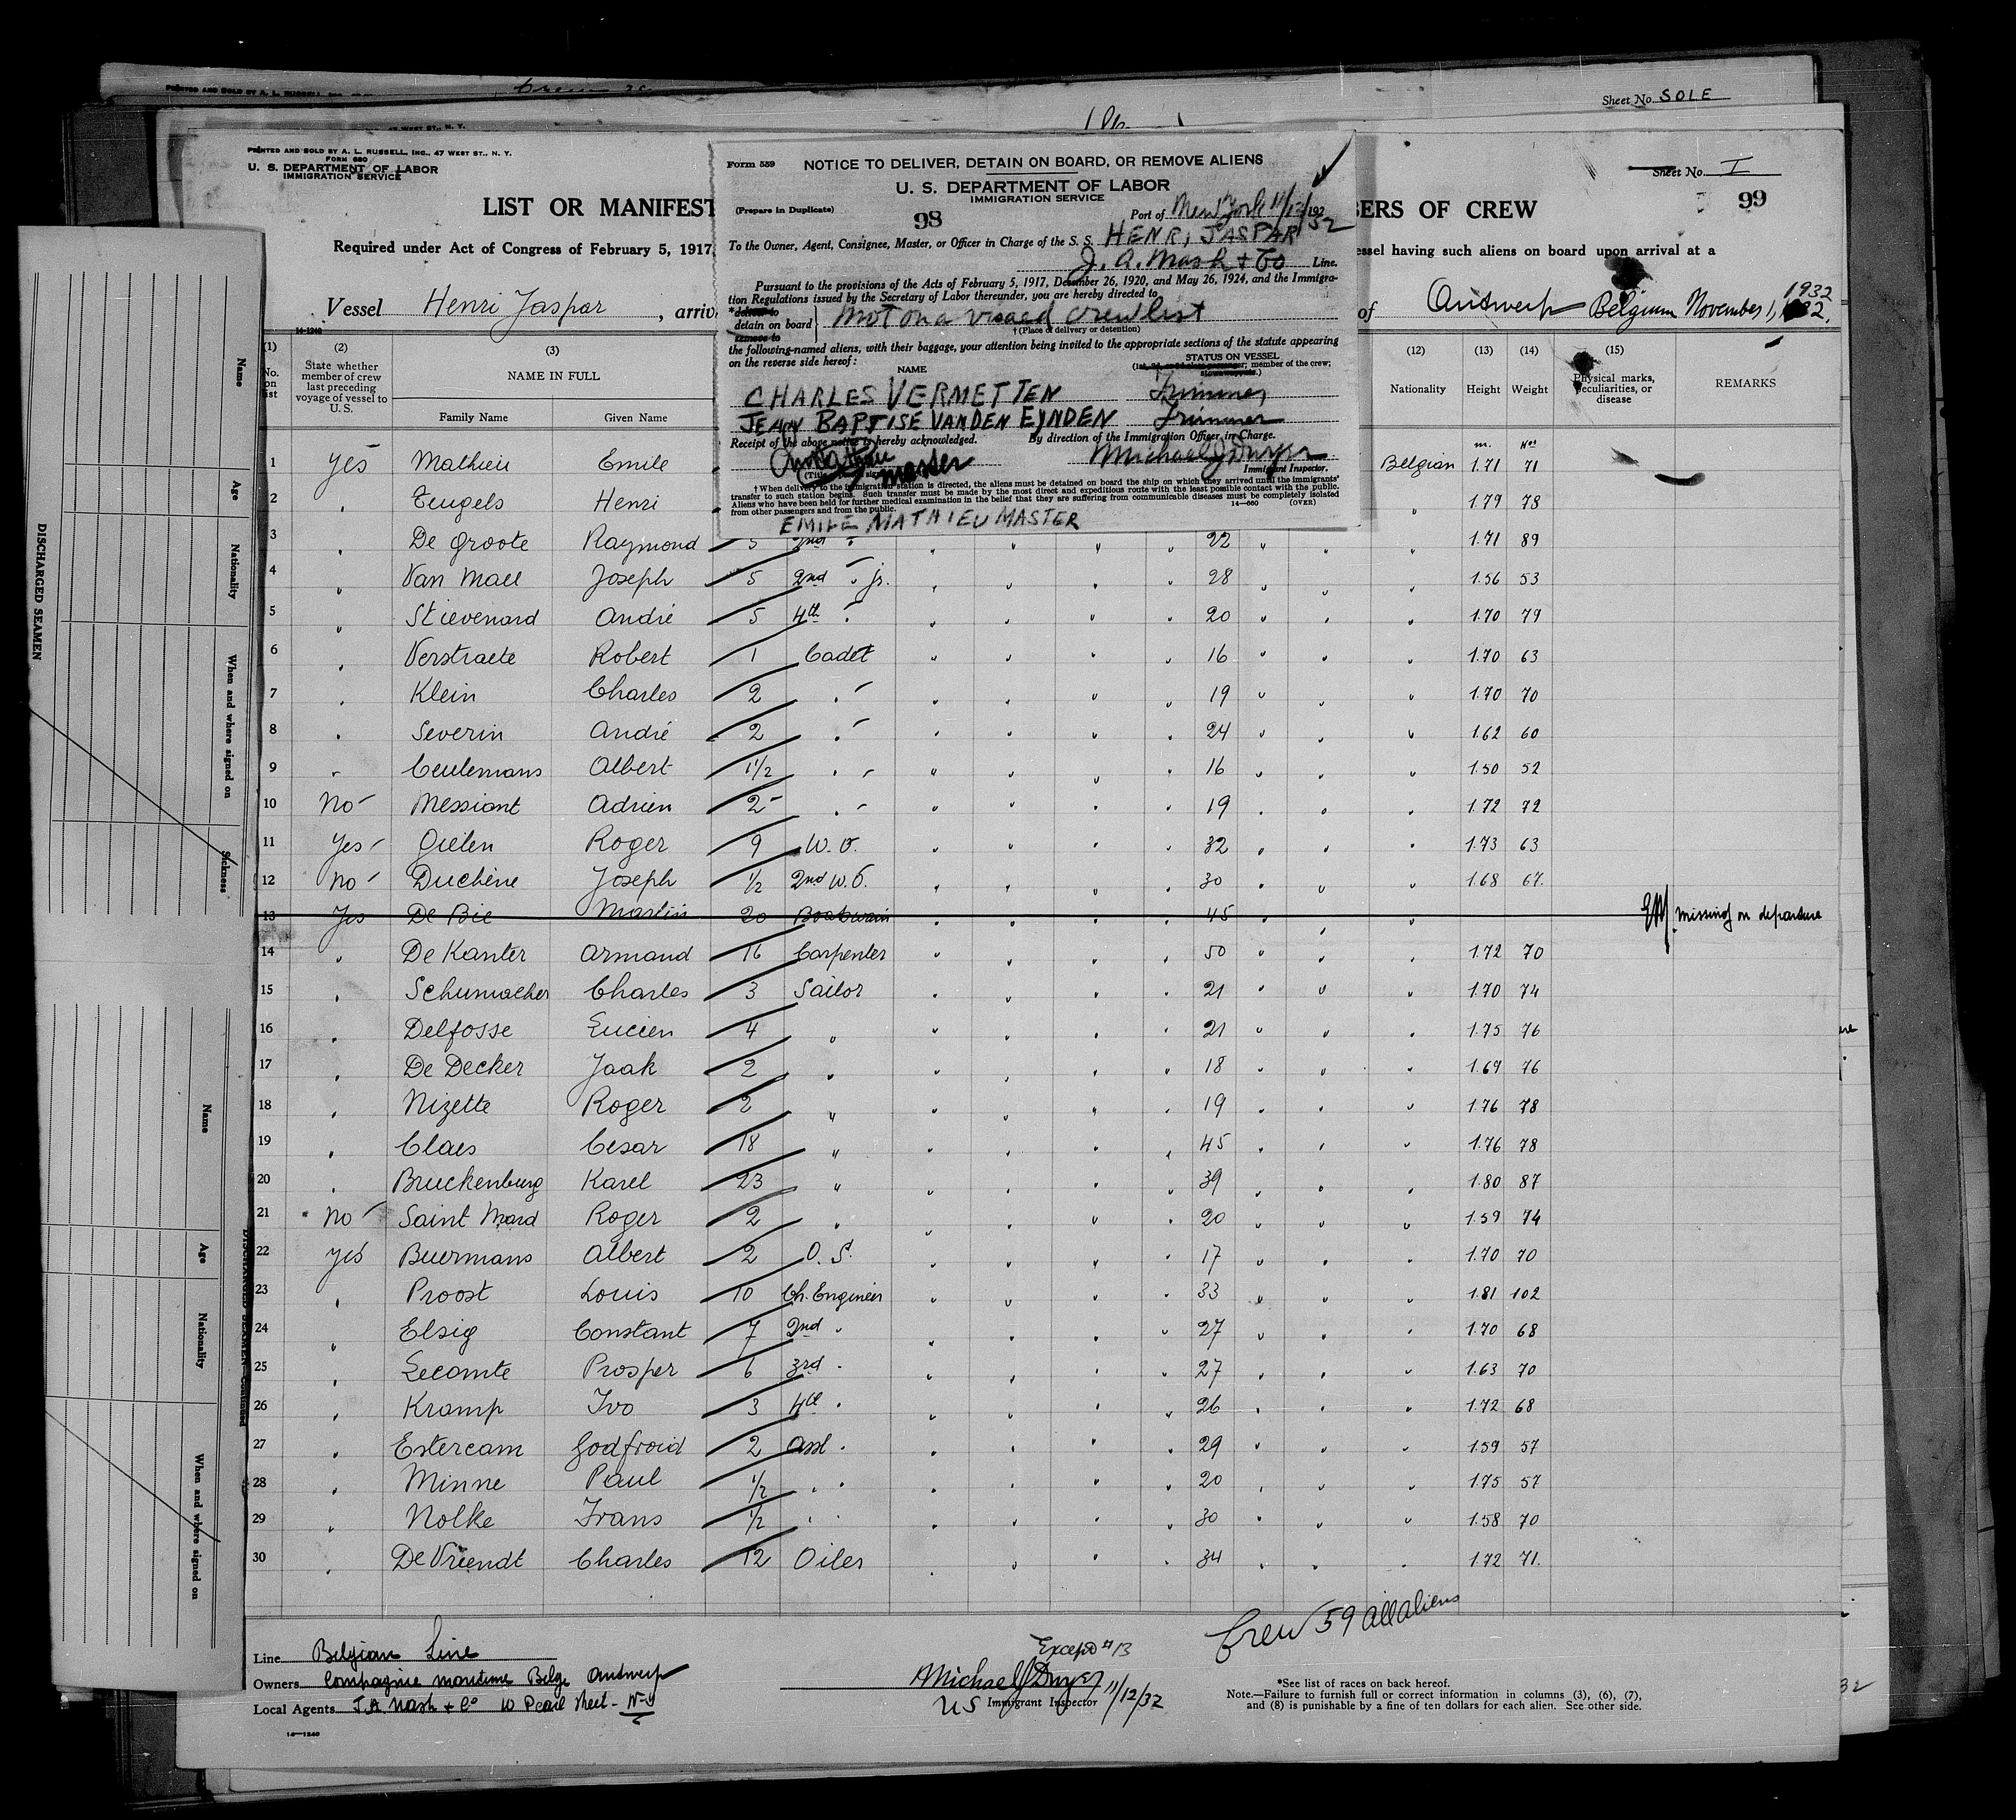 Sheet No. SOLE
PRINTED AND SOLD BY A. L. RUSSELL, INC., 47 WEST ST., N. Y.
FORM 680
U. S. DEPARTMENT OF LABOR
IMMIGRATION SERVICE
Sheet No. I
99
LIST OR MANIFEST
BERS OF CREW
Required under Act of Congress of February 5, 1917,
essel having such aliens on board upon arrival at a
Vessel Henri Jaspar, arriv
of Antwerp Belgium November 1, 1932
14-1240
Form 559
NOTICE TO DELIVER, DETAIN ON BOARD, OR REMOVE ALIENS
U. S. DEPARTMENT OF LABOR
IMMIGRATION SERVICE
(Prepare in Duplicate)
98
Port of New York 11/12/1932
To the Owner, Agent, Consignee, Master, or Officer in Charge of the S. S. HENRI JASPAR
J. A. Nash + Co Line.
Pursuant to the provisions of the Acts of February 5, 1917, December 26, 1920, and May 26, 1924, and the Immigra-
tion Regulations issued by the Secretary of Labor thereunder, you are hereby directed to
*deliver to
detain on board not on a visaed crew list
remove to
†(Place of delivery or detention)
the following-named aliens, with their baggage, your attention being invited to the appropriate sections of the statute appearing
on the reverse side hereof:
STATUS ON VESSEL
NAME
member of the crew;
CHARLES VERMETTEN Trimmer
JEAN BAPTISE VANDEN EYNDEN Trimmer
Receipt of the above notice is hereby acknowledged. By direction of the Immigration Officer in Charge.
master Michael J Dwyer
Immigrant Inspector.
†When delivery to the immigration station is directed, the aliens must be detained on board the ship on which they arrived until the immigrants'
transfer to such station begins. Such transfer must be made by the most direct and expeditious route with the least possible contact with the public.
Aliens who have been held for further medical examination in the belief that they are suffering from communicable diseases must be completely isolated
from other passengers and from the public.
14—660 (OVER)
EMILE MATHIEU MASTER
(1) (2) (3) (12) (13) (14) (15)
No. on list
State whether member of crew last preceding voyage of vessel to U. S.
NAME IN FULL
Family Name Given Name
Nationality Height Weight
Physical marks, peculiarities, or disease
REMARKS
1 Yes Mathieu Emile Belgian 1.71 71
2 " Teugels Henri " 1.79 78
3 " De Groote Raymond 5 2nd " 22 " 1.71 89
4 " Van Mael Joseph 5 2nd " jr. 28 " 1.56 53
5 " Stievenard André 5 4th " 20 " 1.70 79
6 " Verstraete Robert 1 Cadet 16 " 1.70 63
7 " Klein Charles 2 " 19 " 1.70 70
8 " Severin André 2 " 24 " 1.62 60
9 " Ceulemans Albert 1 1/2 " 16 " 1.50 52
10 No Messiant Adrien 2 " 19 " 1.72 72
11 Yes Gielen Roger 9 W. O. 32 " 1.73 63
12 No Duchêne Joseph 1/2 2nd W. O. 30 " 1.68 67.
13 Yes De Bie Martin 20 Boatswain 45 " EM. missing on departure
14 " De Kanter Armand 16 Carpenter 50 " 1.72 70
15 " Schumacher Charles 3 Sailor 21 " 1.70 74
16 " Delfosse Lucien 4 " 21 " 1.75 76
17 " De Decker Jaak 2 " 18 " 1.69 76
18 " Nizette Roger 2 " 19 " 1.76 78
19 " Claes Cesar 18 " 45 " 1.76 78
20 " Bruckenburg Karel 23 " 39 " 1.80 87
21 No Saint Mard Roger 2 " 20 " 1.59 74
22 Yes Buermans Albert 2 O. S. 17 " 1.70 70
23 " Proost Louis 10 Ch. Engineer 33 " 1.81 102
24 " Elsig Constant 7 2nd " 27 " 1.70 68
25 " Lecomte Prosper 6 3rd " 27 " 1.63 70
26 " Kramp Ivo 3 4th " 26 " 1.72 68
27 " Estercam Godfroid 2 asst " 29 " 1.59 57
28 " Minne Paul 1/2 " " 20 " 1.75 57
29 " Nolke Frans 1/2 " " 30 " 1.58 70
30 " De Vriendt Charles 12 Oiler 34 " 1.72 71.
Crew 59 all aliens
Line Belgian Line
Owners Compagnie maritime Belge Antwerp
Local Agents J.A. Nash + Co 10 Pearl Street - N-Y
14—1240
Except #13
Michael J Dwyer
US Immigrant Inspector 11/12/32
*See list of races on back hereof.
Note.—Failure to furnish full or correct information in columns (3), (6), (7),
and (8) is punishable by a fine of ten dollars for each alien. See other side.
DISCHARGED SEAMEN
Name Age Nationality When and where signed on Sickness
DISCHARGED SEAMEN—Continued
Name Age Nationality When and where signed on